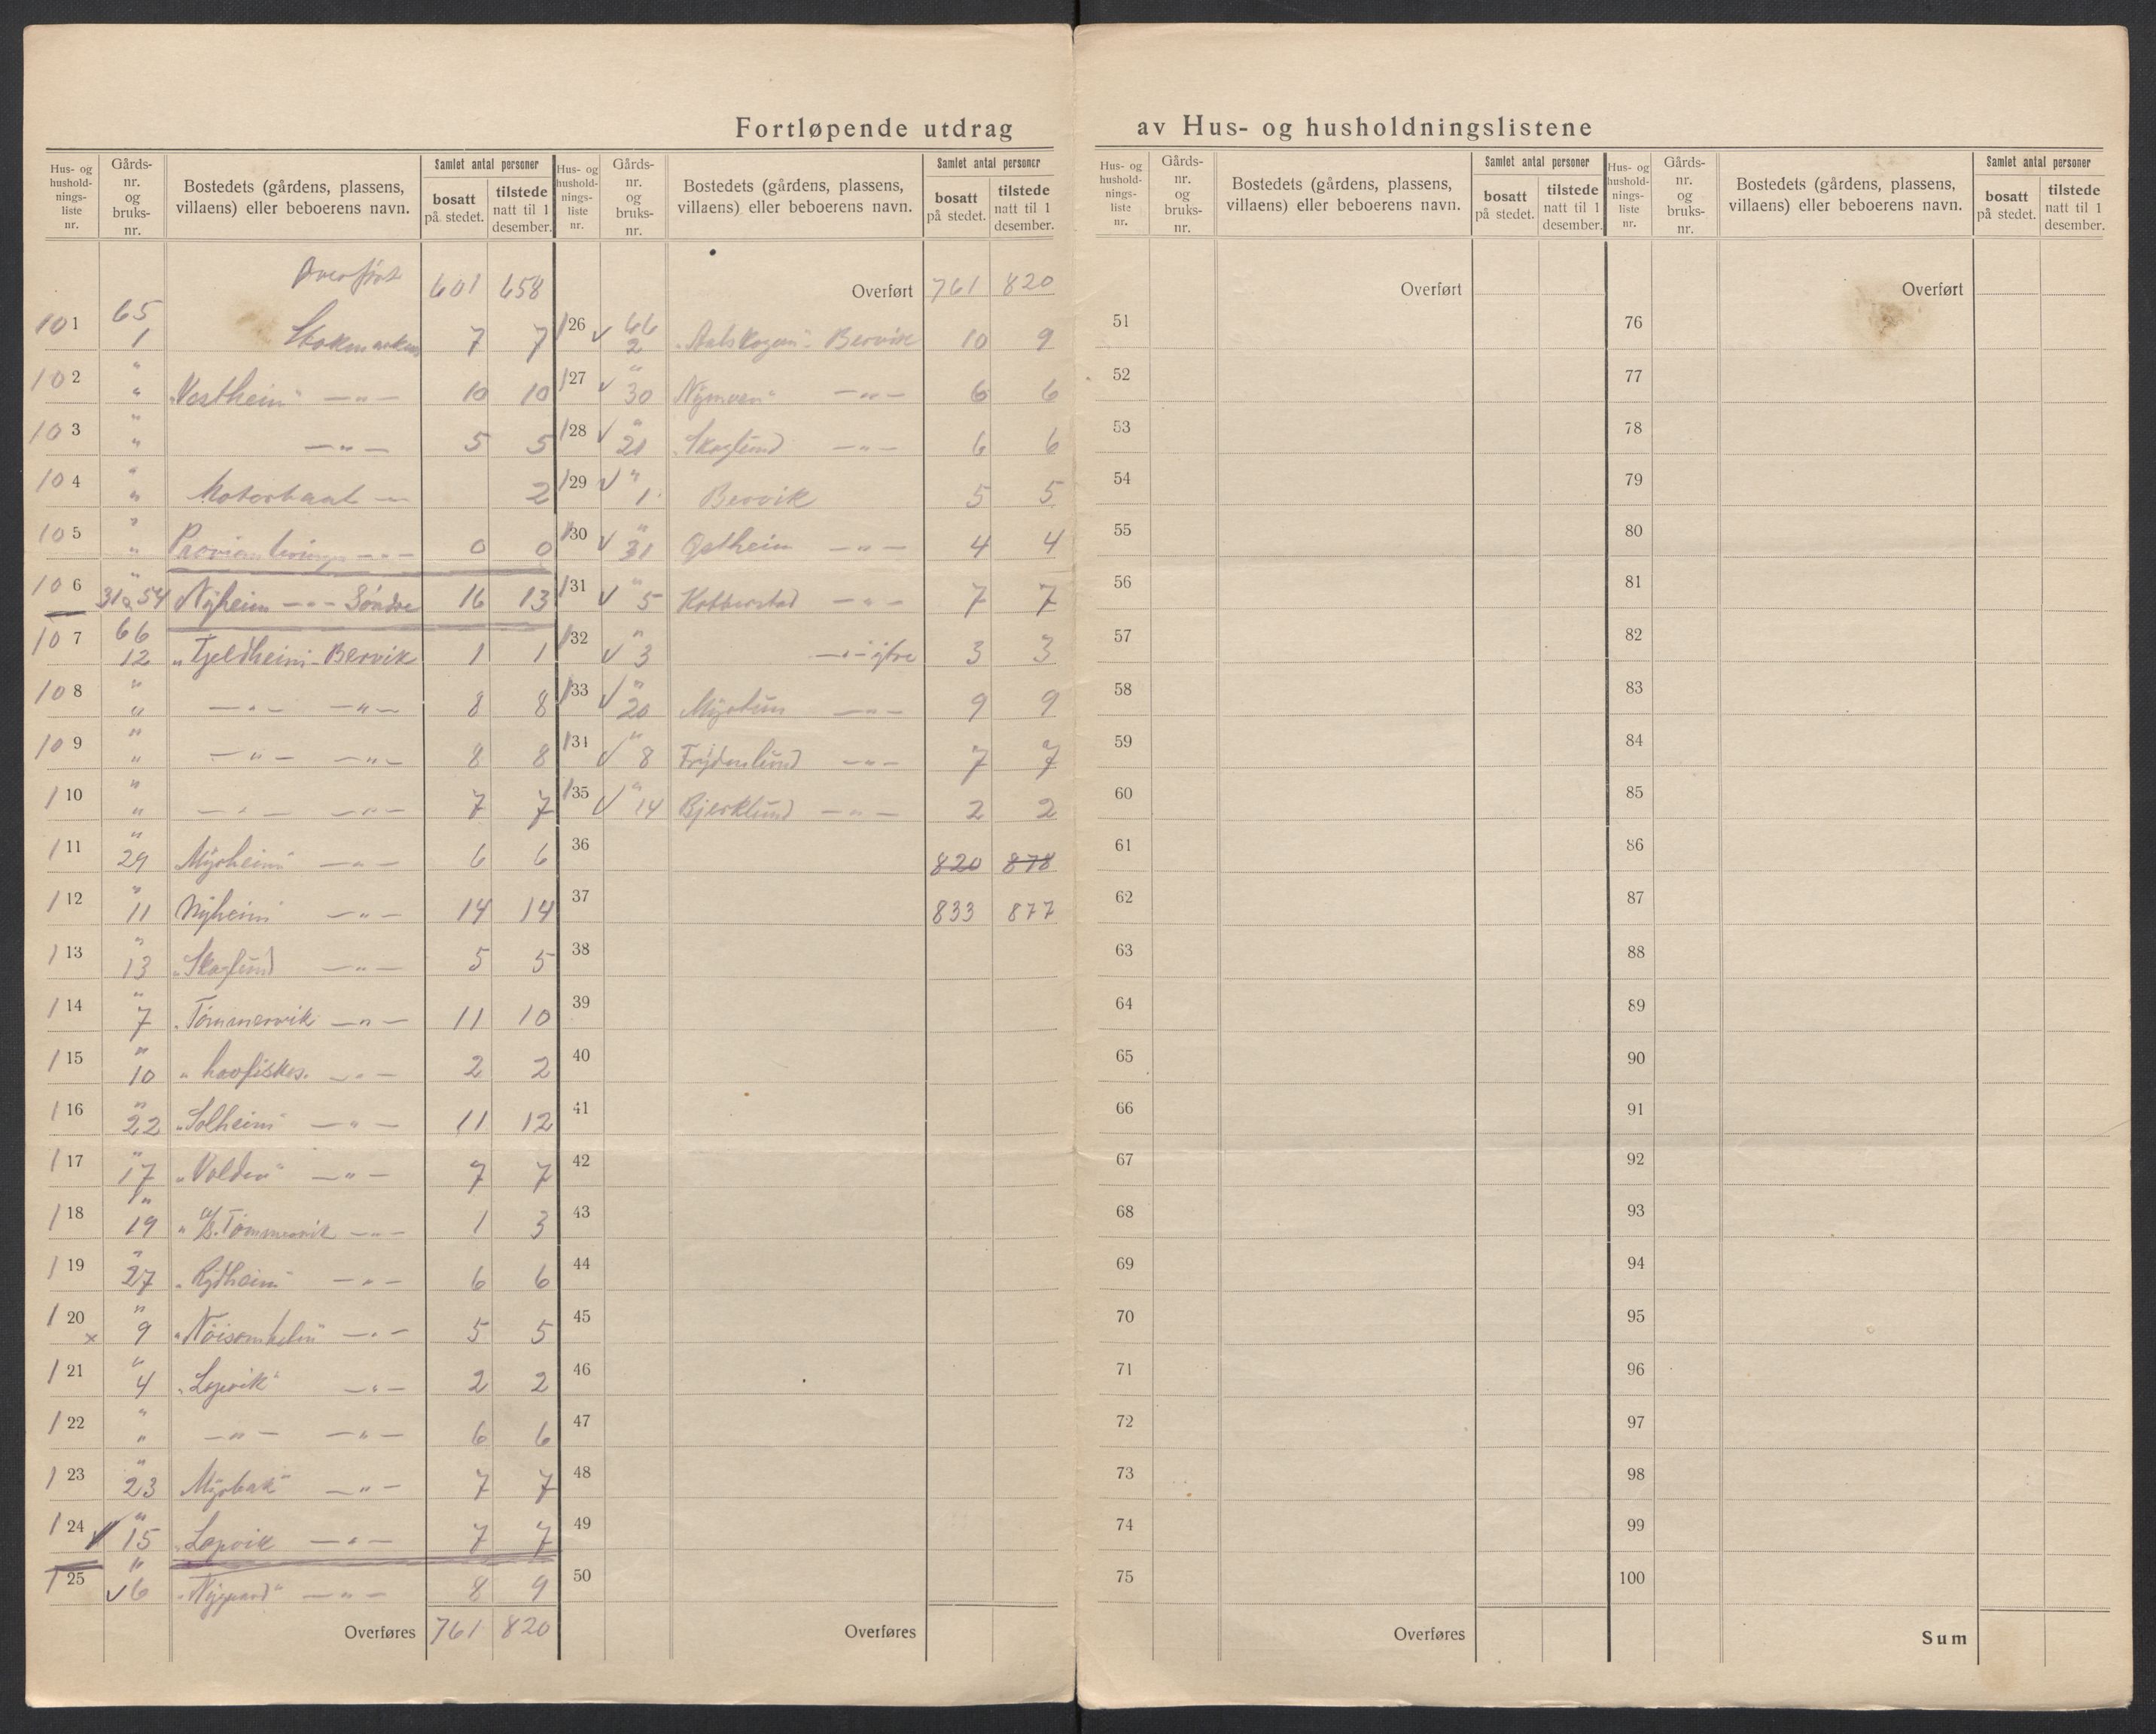 Fortløpende utdrag av Hus- og husholdningslistene
Hus- og hushold-nings-liste nr. Gårds-nr. og bruks-nr. Bostedets (gårdens, plassens, villaens) eller beboerens navn. Samlet antal personer bosatt på stedet. tilstede natt til 1 desember.
Overført 601 658
101 65 1 Stokmarknes 7 7
102 " " "Vestheim" —"— 10 10
103 " " —"— 5 5
104 " " Motorbaat —"— 2
105 " " —"— 0 0
106 " 31 a 54 Nyheim —"— Søndre 16 13
107 66 12 "Fjeldheim" Bervik 1 1
108 " " —"— —"— 8 8
109 " " —"— —"— 8 8
110 " " —"— —"— 7 7
111 " 29 Myrheim" —"— 6 6
112 " 11 Nyheim" —"— 14 14
113 " 13 "Skoglund —"— 5 5
114 " 7 "Tömmervik —"— 11 10
115 " 10 " havfiskes. —"— 2 2
116 " 22 "Solheim" —"— 11 12
117 " 17 "Volden" —"— 7 7
118 " 19 " Tömmervik —"— 1 3
119 " 27 "Rydheim" —"— 6 6
120 x " 9 "Nöisomheten" —"— 5 5
121 " 4 "Lapvik" —"— 2 2
122 " " —"— —"— 6 6
123 " 23 Myrbak" —"— 7 7
124 ✓ " 15 "Lapvik —"— 7 7
125 ✓ " 6 "Nygaard" —"— 8 9
Overføres 761 820
Hus- og hushold-nings-liste nr. Gårds-nr. og bruks-nr. Bostedets (gårdens, plassens, villaens) eller beboerens navn. Samlet antal personer bosatt på stedet. tilstede natt til 1 desember.
Overført 761 820
126 ✓ 66 2 Bervik 10 9
127 ✓ " 30 Nymoen" —"— 6 6
128 ✓ " 21 "Skoglund —"— 6 6
129 ✓ " 1 Bervik 5 5
130 ✓ " 31 Østheim —"— 4 4
131 ✓ " 5 Kobberstad —"— 7 7
132 ✓ " 3 —"— ytre 3 3
133 ✓ " 20 Myrtun —"— 9 9
134 ✓ " 8 Frydenlund —"— 7 7
135 ✓ " 14 Bjerklund —"— 2 2
36 820 878
37 833 877
38
39
40
41
42
43
44
45
46
47
48
49
50
Overføres
Hus- og hushold-nings-liste nr. Gårds-nr. og bruks-nr. Bostedets (gårdens, plassens, villaens) eller beboerens navn. Samlet antal personer bosatt på stedet. tilstede natt til 1 desember.
Overført
51
52
53
54
55
56
57
58
59
60
61
62
63
64
65
66
67
68
69
70
71
72
73
74
75
Overføres
Hus- og hushold-nings-liste nr. Gårds-nr. og bruks-nr. Bostedets (gårdens, plassens, villaens) eller beboerens navn. Samlet antal personer bosatt på stedet. tilstede natt til 1 desember.
Overført
76
77
78
79
80
81
82
83
84
85
86
87
88
89
90
91
92
93
94
95
96
97
98
99
100
Sum